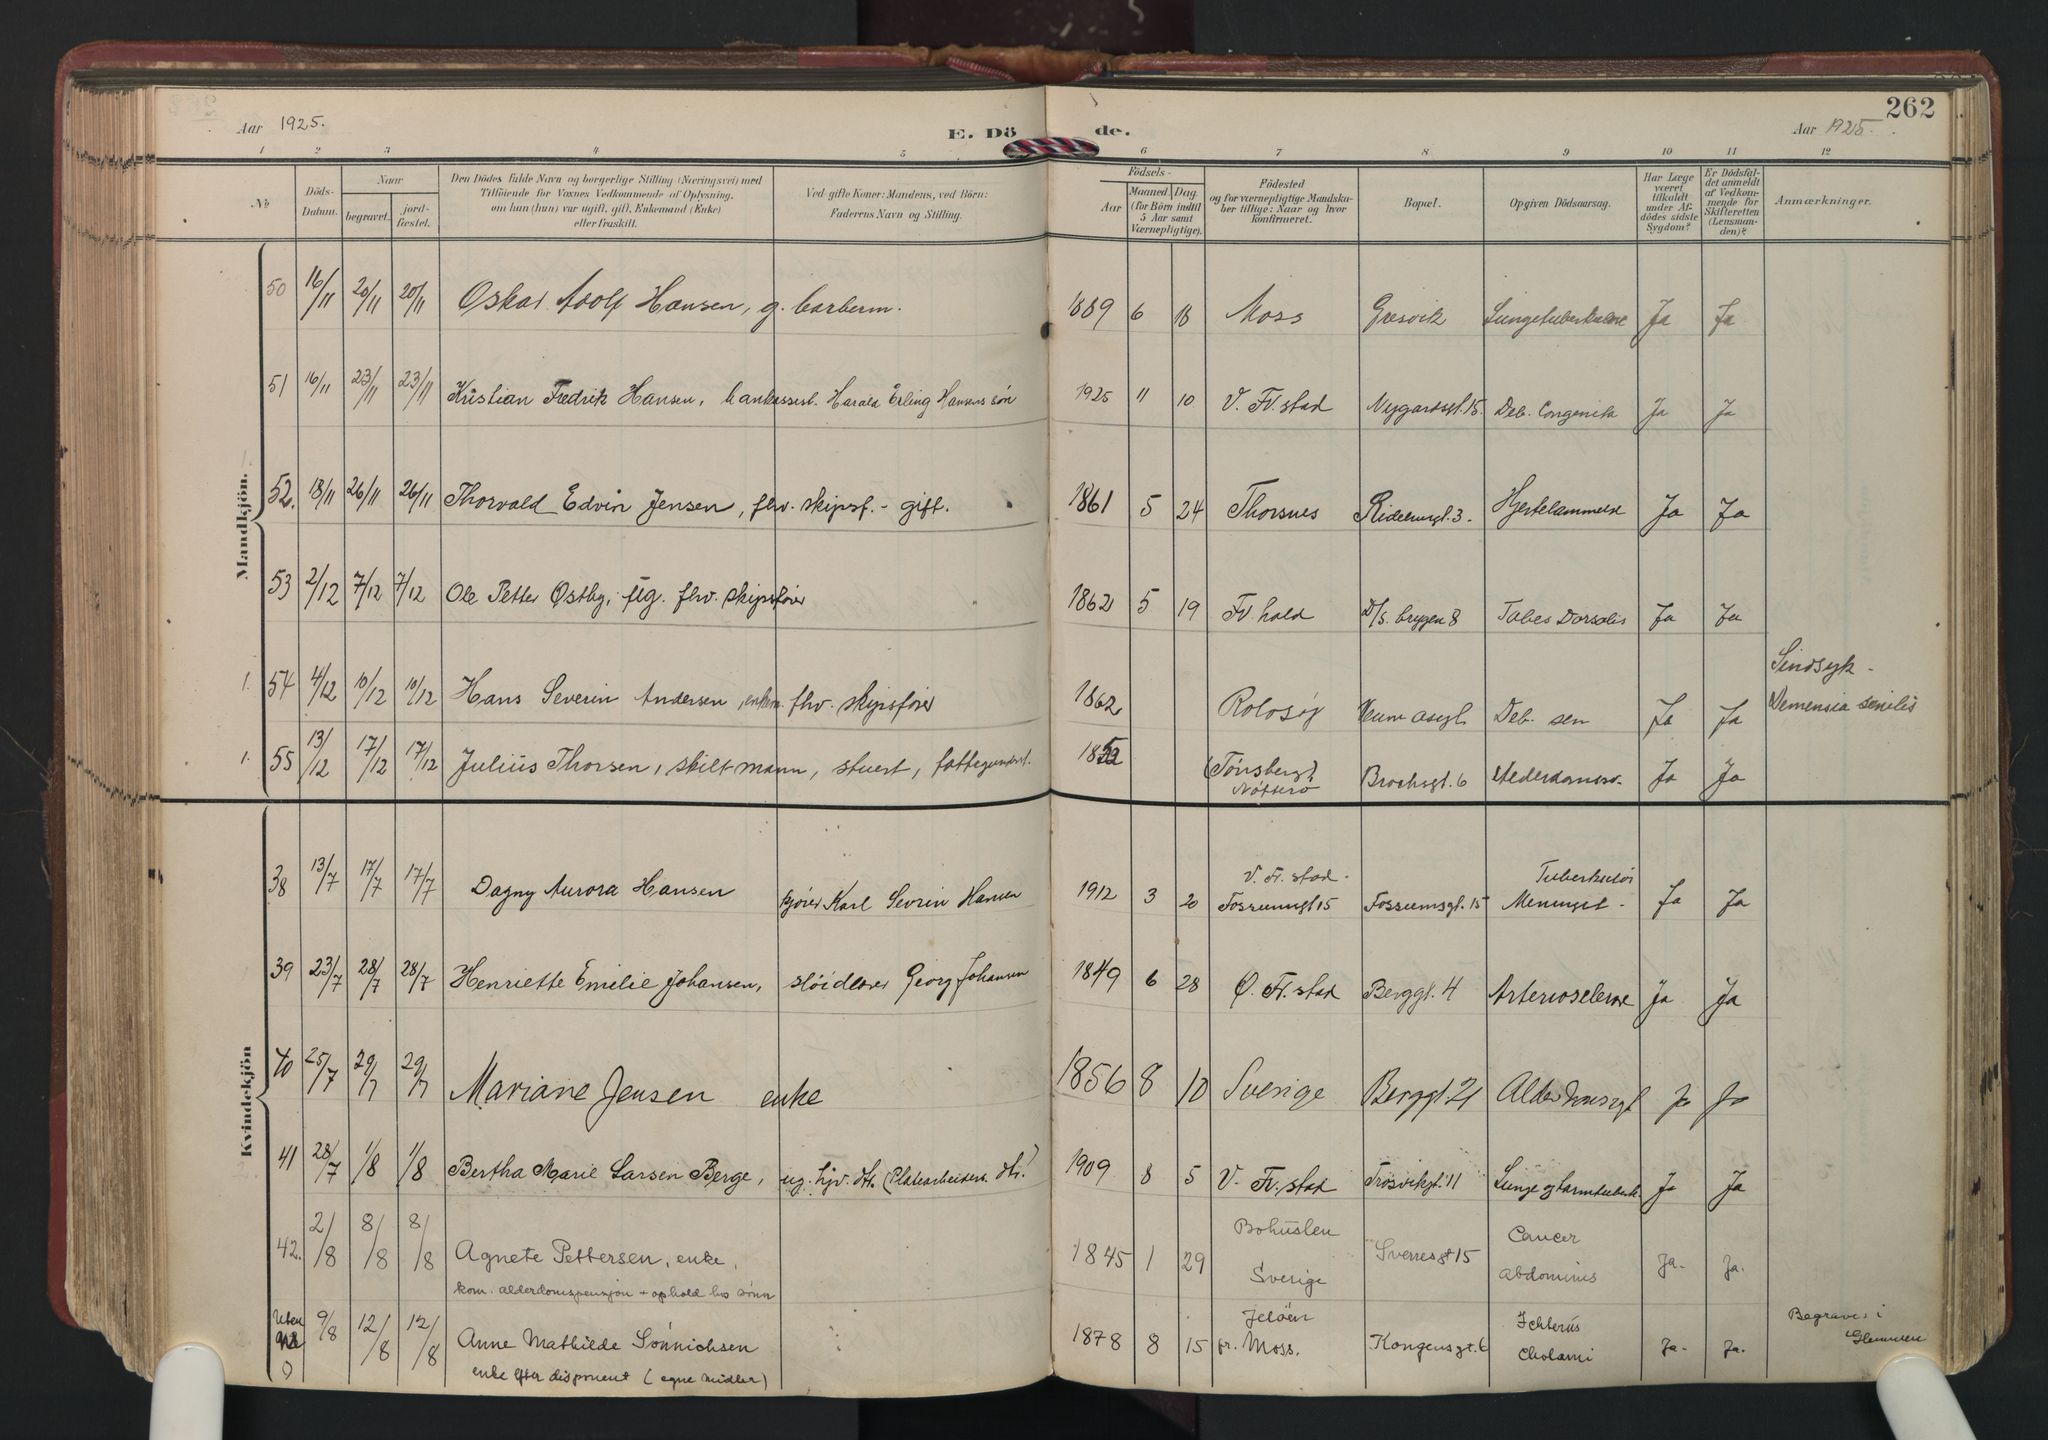 262
Aar 1925. E. Dö de. Aar 1925.
1 2 3 4 5 6 7 8 9 10 11 12
No
Döds-
Datum.
Naar
begravet.
jord-
fæstet.
Den Dödes fulde Navn og borgerlige Stilling (Næringsvei) med
Tilföiende for Voxnes Vedkommende af Oplysning,
om han (hun) var ugift, gift, Enkemand (Enke)
eller fraskilt.
Ved gifte Koner: Mandens, ved Börn:
Faderens Navn og Stilling.
Födsels-
Aar
Maaned. Dag.
(for Börn indtil
5 Aar samt
Værnepligtige).
Födested
og for værnepligtige Mandsku-
ber tillige: Naar og hvor
konfirmeret.
Bopæl.
Opgiven Dödsaarsag.
Har Læge
været
tilkaldt
under Af-
dödes sidste
Sygdom?
Er Dödsfal-
det anmeldt
af Vedkom-
mende for
Skifteretten
(Lensman-
den)?
Anmærkninger.
Mandkjön.
50 16/11 20/11 20/11 Oskar Adolf Hansen, g. barberm. 1889 6 18 Moss Gresvik Lungetuberkulose Ja Ja
51 16/11 23/11 23/11 Kristian Fredrik Hansen, bankassist. Harald Erling Hansens søn 1925 11 10 V. Fr.stad Nygaardsgt. 15. Deb. Congenita Ja Ja
52. 18/11 26/11 26/11 Thorvald Edvin Jensen, fhv. skipsf. - gift. 1861 5 24 Thorsnes 3. Hjertelammelse Ja Ja
53 2/12 7/12 7/12 Ole Petter Østby, fhv. skipsfører 1862 5 19 Fr. hald D/s. bryggen 8 Tabes Dorsalis Ja Ja
Sindsyk -
1. 54 4/12 10/12 10/12 Hans Severin Andersen, enkem. fhv. skipsfører 1862 Rolvsøy Veum asyl Deb. sen Ja Ja Demensia senilis
1. 55 13/12 17/12 17/12 Julius Thorsen, skilt mann, stuert, fattigunderst. (Tønsberg) Brochsgt. 6 Ja Ja
Nøtterø
Kvindekjön
V. Fr. stad. Tuberkuløs
38 13/7 17/7 17/7 Dagny Aurora Hansen kjører Karl Sevrin Hansen 1912 3 20 Fossumsgt 15 Fossumsgt. 15 Meningit - Ja Ja
39 23/7 28/7 28/7 Henriette Emilie Johansen, sløidlærer Georg Johansen 1849 6 28 Ø. Fr. stad Berggt. 4 Arteriosclerose Ja Ja
40 25/7 29/7 29/7 Mariane Jensen enke 1856 8 10 Sverige Berggt. 21 Ja Ja
41 28/7 1/8 1/8 Bertha Marie Larsen Berge, ug. hjv. dtr. (Platearbeiders dtr.) 1909 8 5 V. Fr. stad Trosvikgt. 11 Lunge og tarmtuberk. Ja Ja
Bohuslen Cancer
42. 2/8 8/8 8/8 Agnete Pettersen, enke, 1845 1 29 Sverresgt 15 Ja. Ja.
kom. alderdomspensjon + ophold hos sønn Sverige Abdominis
Uten Jeløen Ichterus Begraves i
No 9/8 12/8 12/8 Anne Mathilde Sønnichsen 1878 8 15 pr. Moss. Kongensgt. 6 Cholami Ja. Ja. Glemmen
0 enke efter disponent (egne midler)